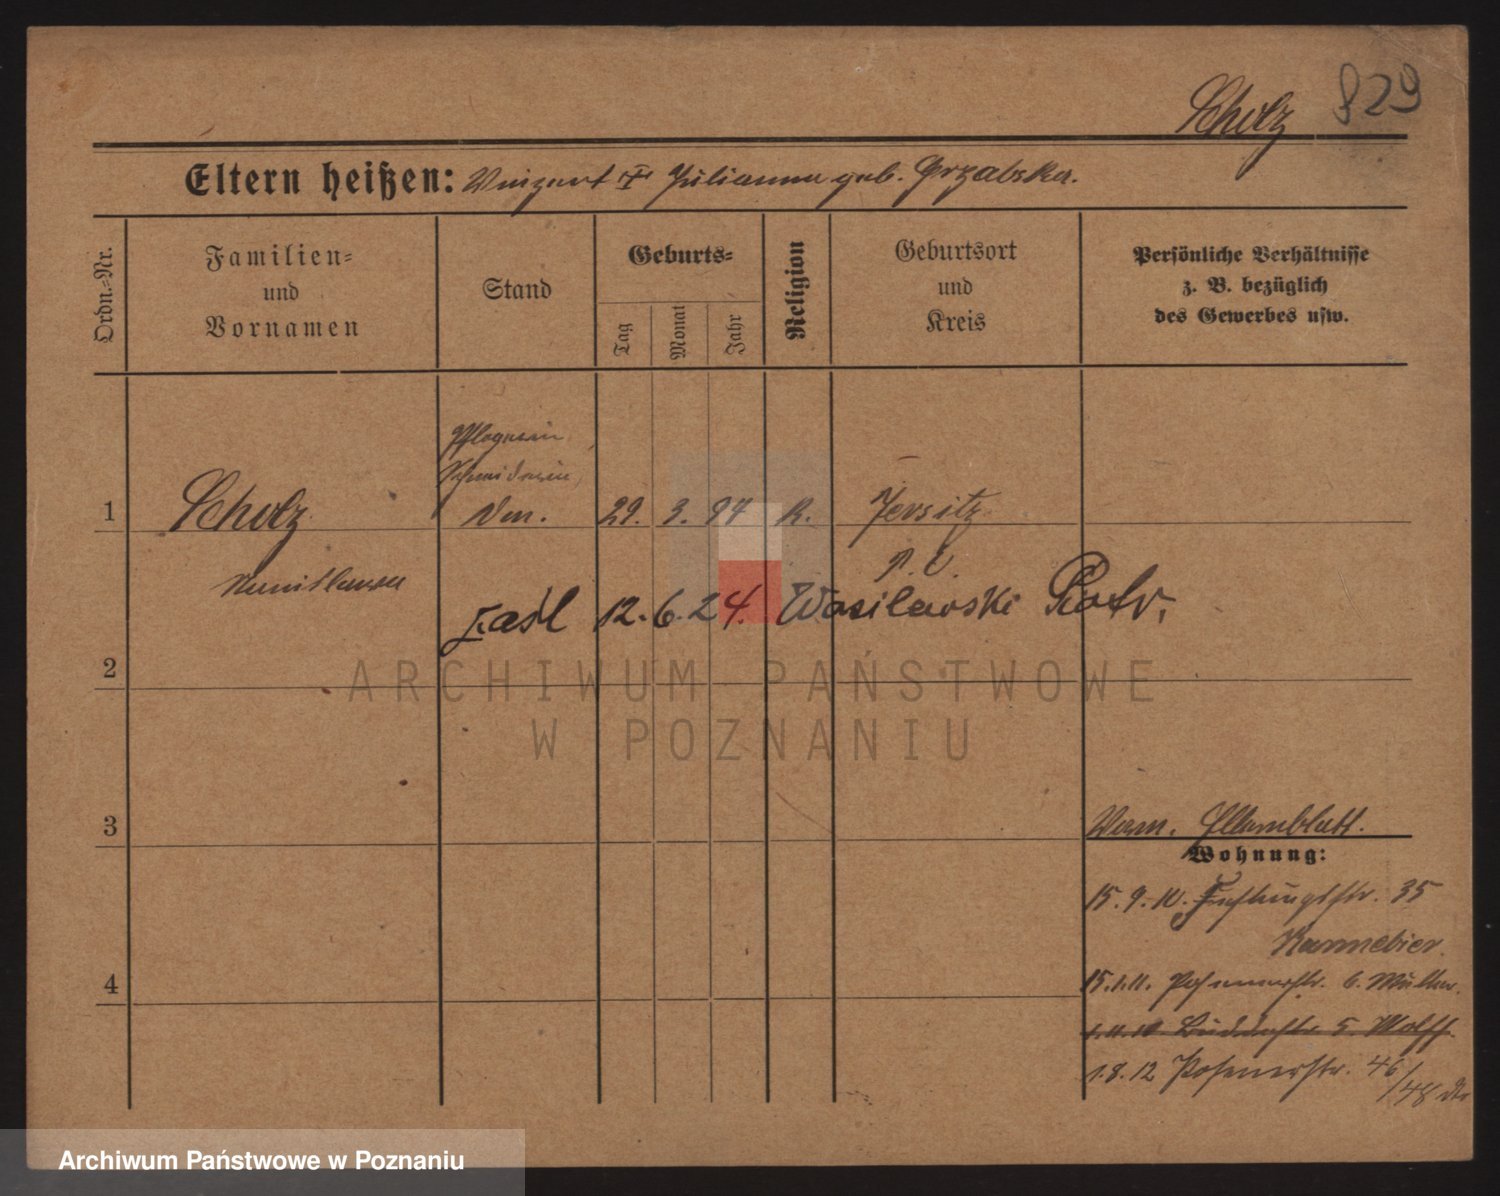 829
Scholz
Eltern heißen: Vinzent Julianna geb. Grzabska.
Ordn.-Nr.
Familien-
und
Vornamen
Stand
Geburts-
Tag
Monat
Jahr
Religion
Geburtsort
und
Kreis
Persönliche Verhältnisse
z. B. bezüglich
des Gewerbes usw.
1
Scholz
29. 3. 94 R. Jersitz
Stanislawa
zaśl 12.6.24. Wasilewski Piotr.
2
3
4
Wohnung:
15. 9. 10. 35
Kannebier.
15.1.11. Posenerstr. 6. Müller.
5. Wolff.
1.8.12 Posenerstr. 46/48
ARCHIWUM PAŃSTWOWE
W POZNANIU
Archiwum Państwowe w Poznaniu